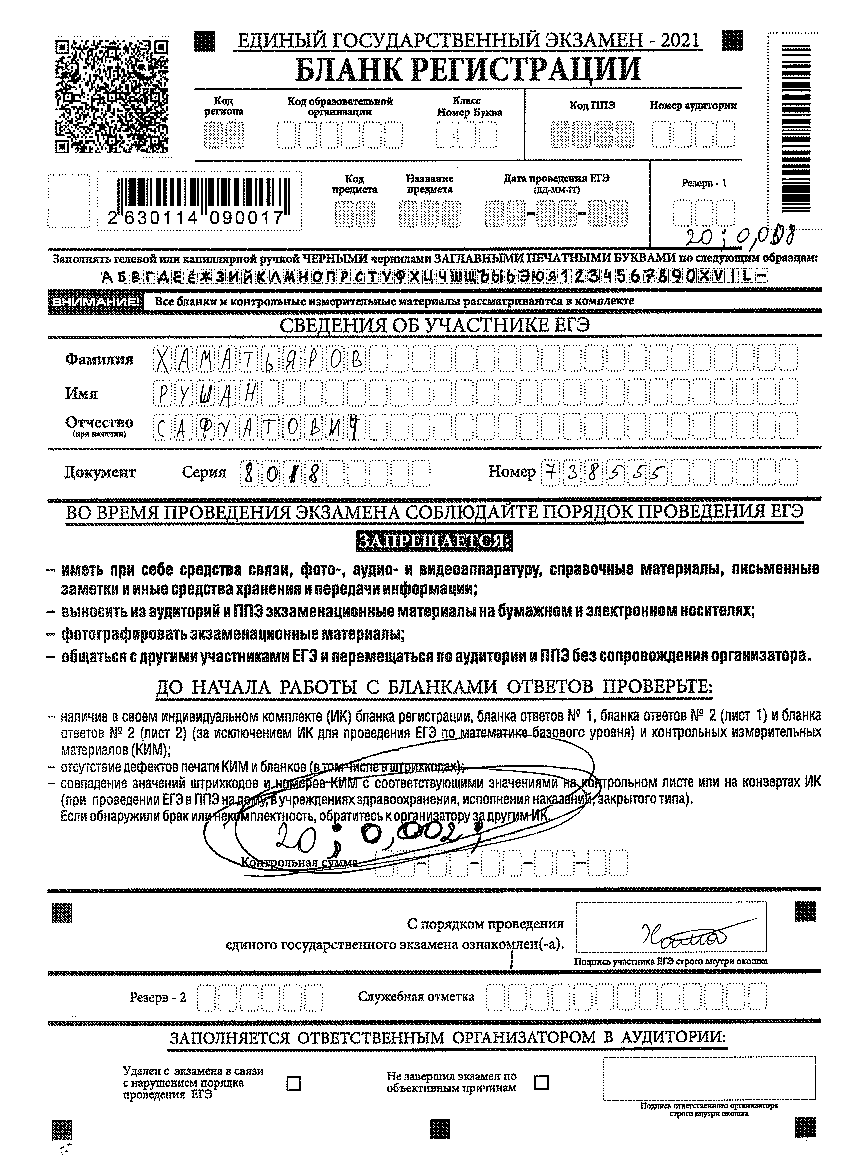 ЕДИНЫЙ ГОСУДАРСТВЕННЫЙ ЭКЗАМЕН - 2021
БЛАНК РЕГИСТРАЦИИ
Код региона
Код образовательной организации
Класс
Номер Буква
Код ППЭ
Номер аудитории
2 630114 090017
Код предмета
Название предмета
Дата проведения ЕГЭ
(ДД-ММ-ГГ)
Резерв - 1
Заполнять гелевой или капиллярной ручкой ЧЕРНЫМИ чернилами ЗАГЛАВНЫМИ ПЕЧАТНЫМИ БУКВАМИ по следующим образцам:
АБВГДЕЁЖЗИЙКЛМНОПРСТУФХЦЧШЩЪЫЬЭЮЯ1234567890XVIL-
ВНИМАНИЕ! Все бланки и контрольные измерительные материалы рассматриваются в комплекте
СВЕДЕНИЯ ОБ УЧАСТНИКЕ ЕГЭ
Фамилия ХАМАТЬЯРОВ
Имя РУШАН
Отчество САФУАТОВИЧ
(при наличии)
Документ Серия 8018 Номер 738555
ВО ВРЕМЯ ПРОВЕДЕНИЯ ЭКЗАМЕНА СОБЛЮДАЙТЕ ПОРЯДОК ПРОВЕДЕНИЯ ЕГЭ
ЗАПРЕЩАЕТСЯ:
– иметь при себе средства связи, фото-, аудио- и видеоаппаратуру, справочные материалы, письменные
заметки и иные средства хранения и передачи информации;
– выносить из аудиторий и ППЭ экзаменационные материалы на бумажном и электронном носителях;
– фотографировать экзаменационные материалы;
– общаться с другими участниками ЕГЭ и перемещаться по аудитории и ППЭ без сопровождения организатора.
ДО НАЧАЛА РАБОТЫ С БЛАНКАМИ ОТВЕТОВ ПРОВЕРЬТЕ:
– наличие в своем индивидуальном комплекте (ИК) бланка регистрации, бланка ответов № 1, бланка ответов № 2 (лист 1) и бланка
ответов № 2 (лист 2) (за исключением ИК для проведения ЕГЭ по математике базового уровня) и контрольных измерительных
материалов (КИМ);
– отсутствие дефектов печати КИМ и бланков (в том числе в штрихкодах);
– совпадение значений штрихкодов и номеров КИМ с соответствующими значениями на контрольном листе или на конвертах ИК
(при проведении ЕГЭ в ППЭ на дому, в учреждениях здравоохранения, исполнения наказаний, закрытого типа).
Если обнаружили брак или некомплектность, обратитесь к организатору за другим ИК.
20 ; 0,002 ;
Контрольная сумма
С порядком проведения
единого государственного экзамена ознакомлен(-а).
Подпись участника ЕГЭ строго внутри окошка
Резерв - 2 Служебная отметка
ЗАПОЛНЯЕТСЯ ОТВЕТСТВЕННЫМ ОРГАНИЗАТОРОМ В АУДИТОРИИ:
Удален с экзамена в связи
с нарушением порядка
проведения ЕГЭ
Не завершил экзамен по
объективным причинам
Подпись ответственного организатора
строго внутри окошка